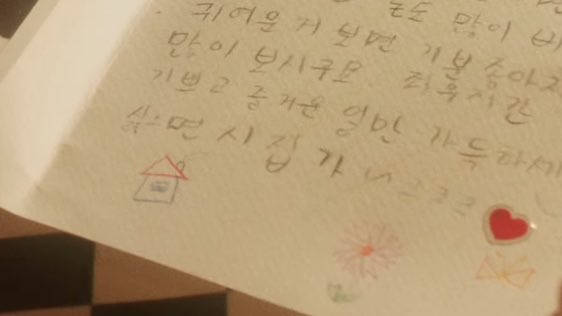 눈도 많이
귀여운 거 보면 기분 좋아지
많이 보시구요
기쁘고 즐거운 일만 가득하세
싫으면 시집가